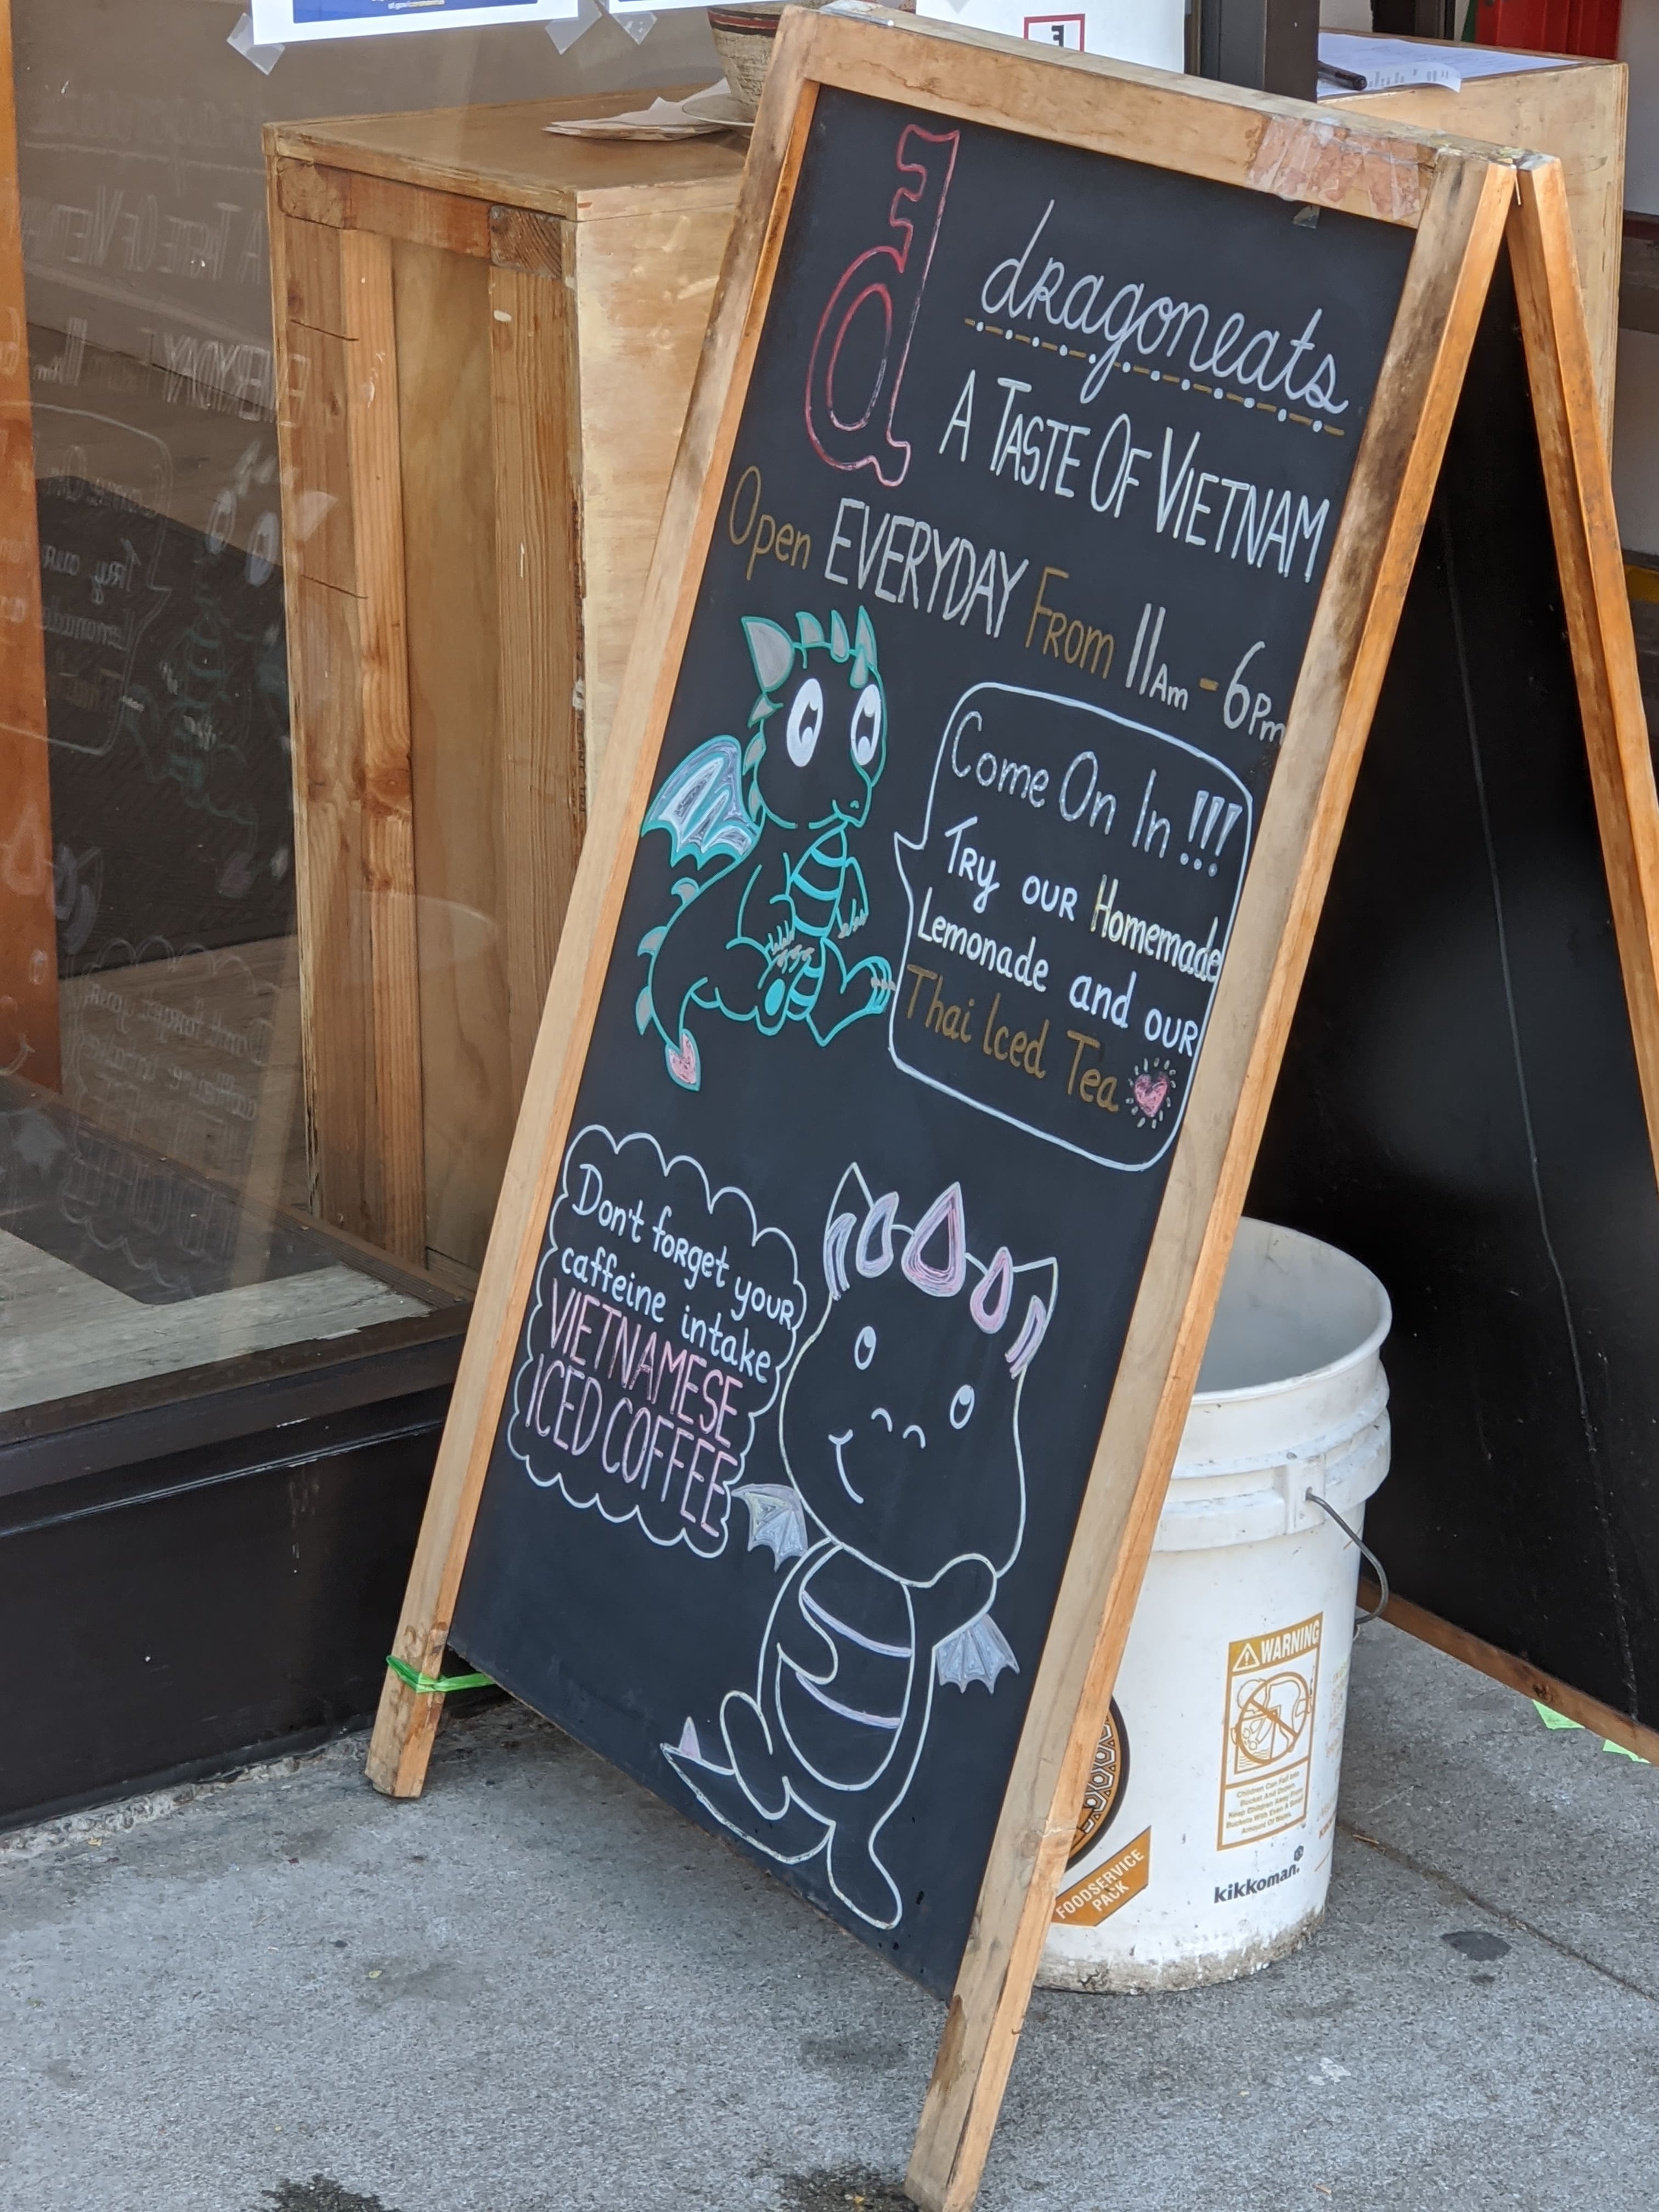 dragoneats
A TASTE OF VIETNAM
Open EVERYDAY FROM 11AM - 6PM
Come On In !!!
TRY OUR Homemade
Lemonade and OUR
Thai Iced Tea
Don't forget your
caffeine intake
VIETNAMESE
ICED COFFEE
WARNING
Children Can Fall Into
Bucket And Drown
Keep Children Away From
Buckets With Even A Small
Amount Of Water.
kikkoman®
FOODSERVICE
PACK